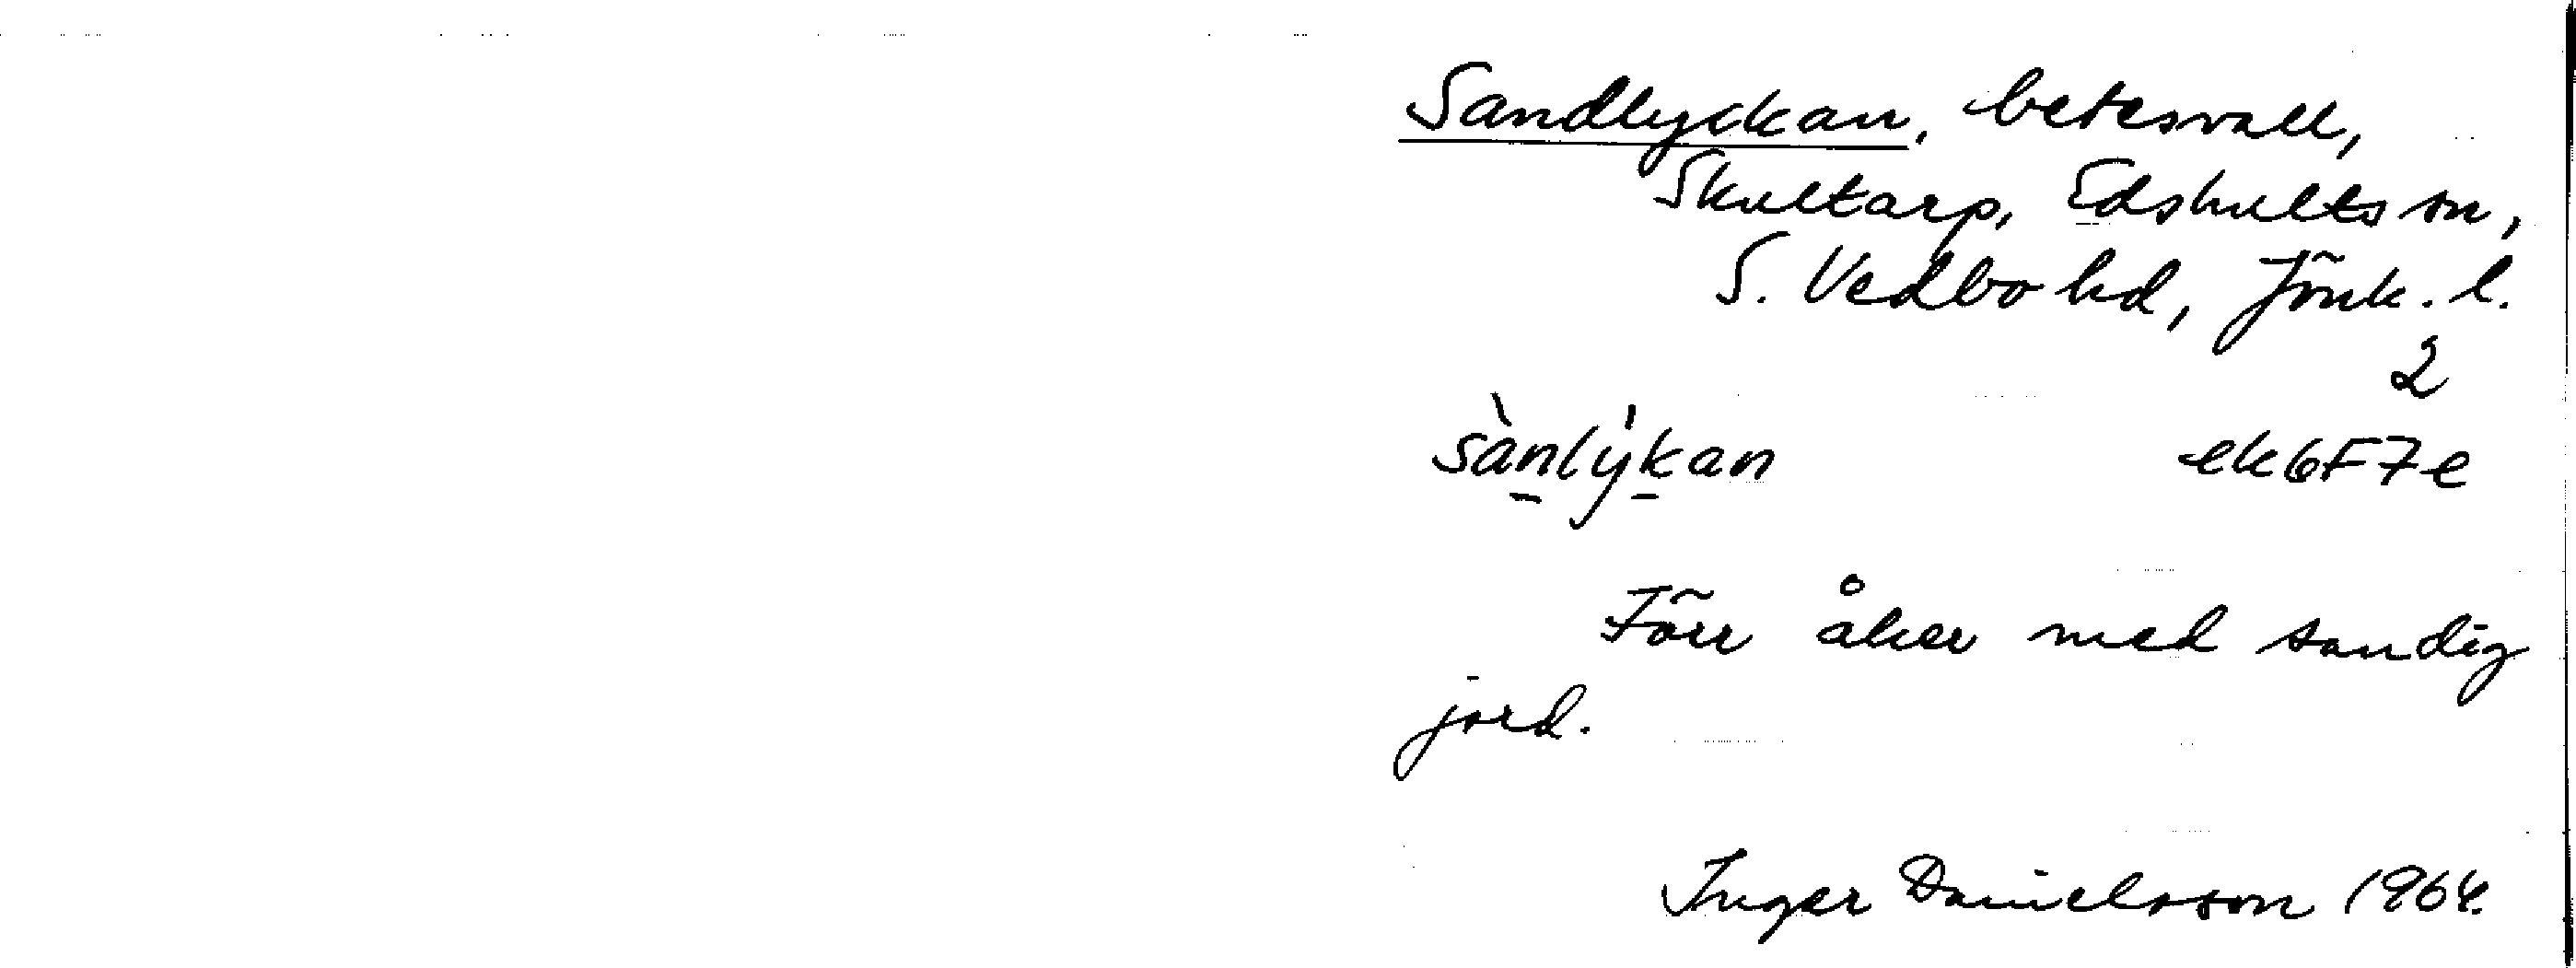 Sandlyckan, betesvall,
Skultarp, Edshults sn,
S. Vedbo hd, Jönk. l.
2
sànlýkan ek6F7e
Förr åker med sandig
jord.
Inger Danielsson 1964.